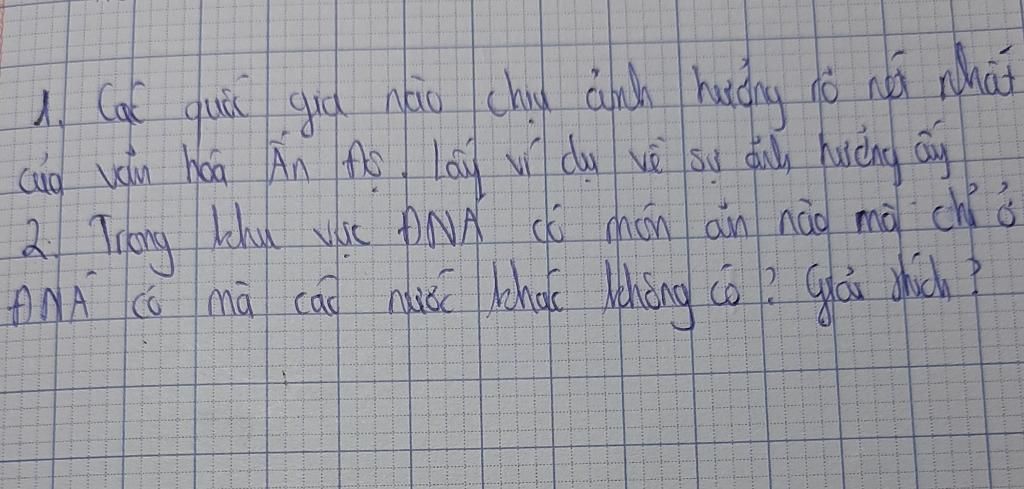 1. Các quốc gia nào chịu ảnh hưởng rõ nét nhất
của văn hoá Ấn Độ. Lấy ví dụ về sự ảnh hưởng ấy
2. Trong khu vực ĐNÁ có món ăn nào mà chỉ ở
ĐNÁ có mà các nước khác không có? Giải thích?